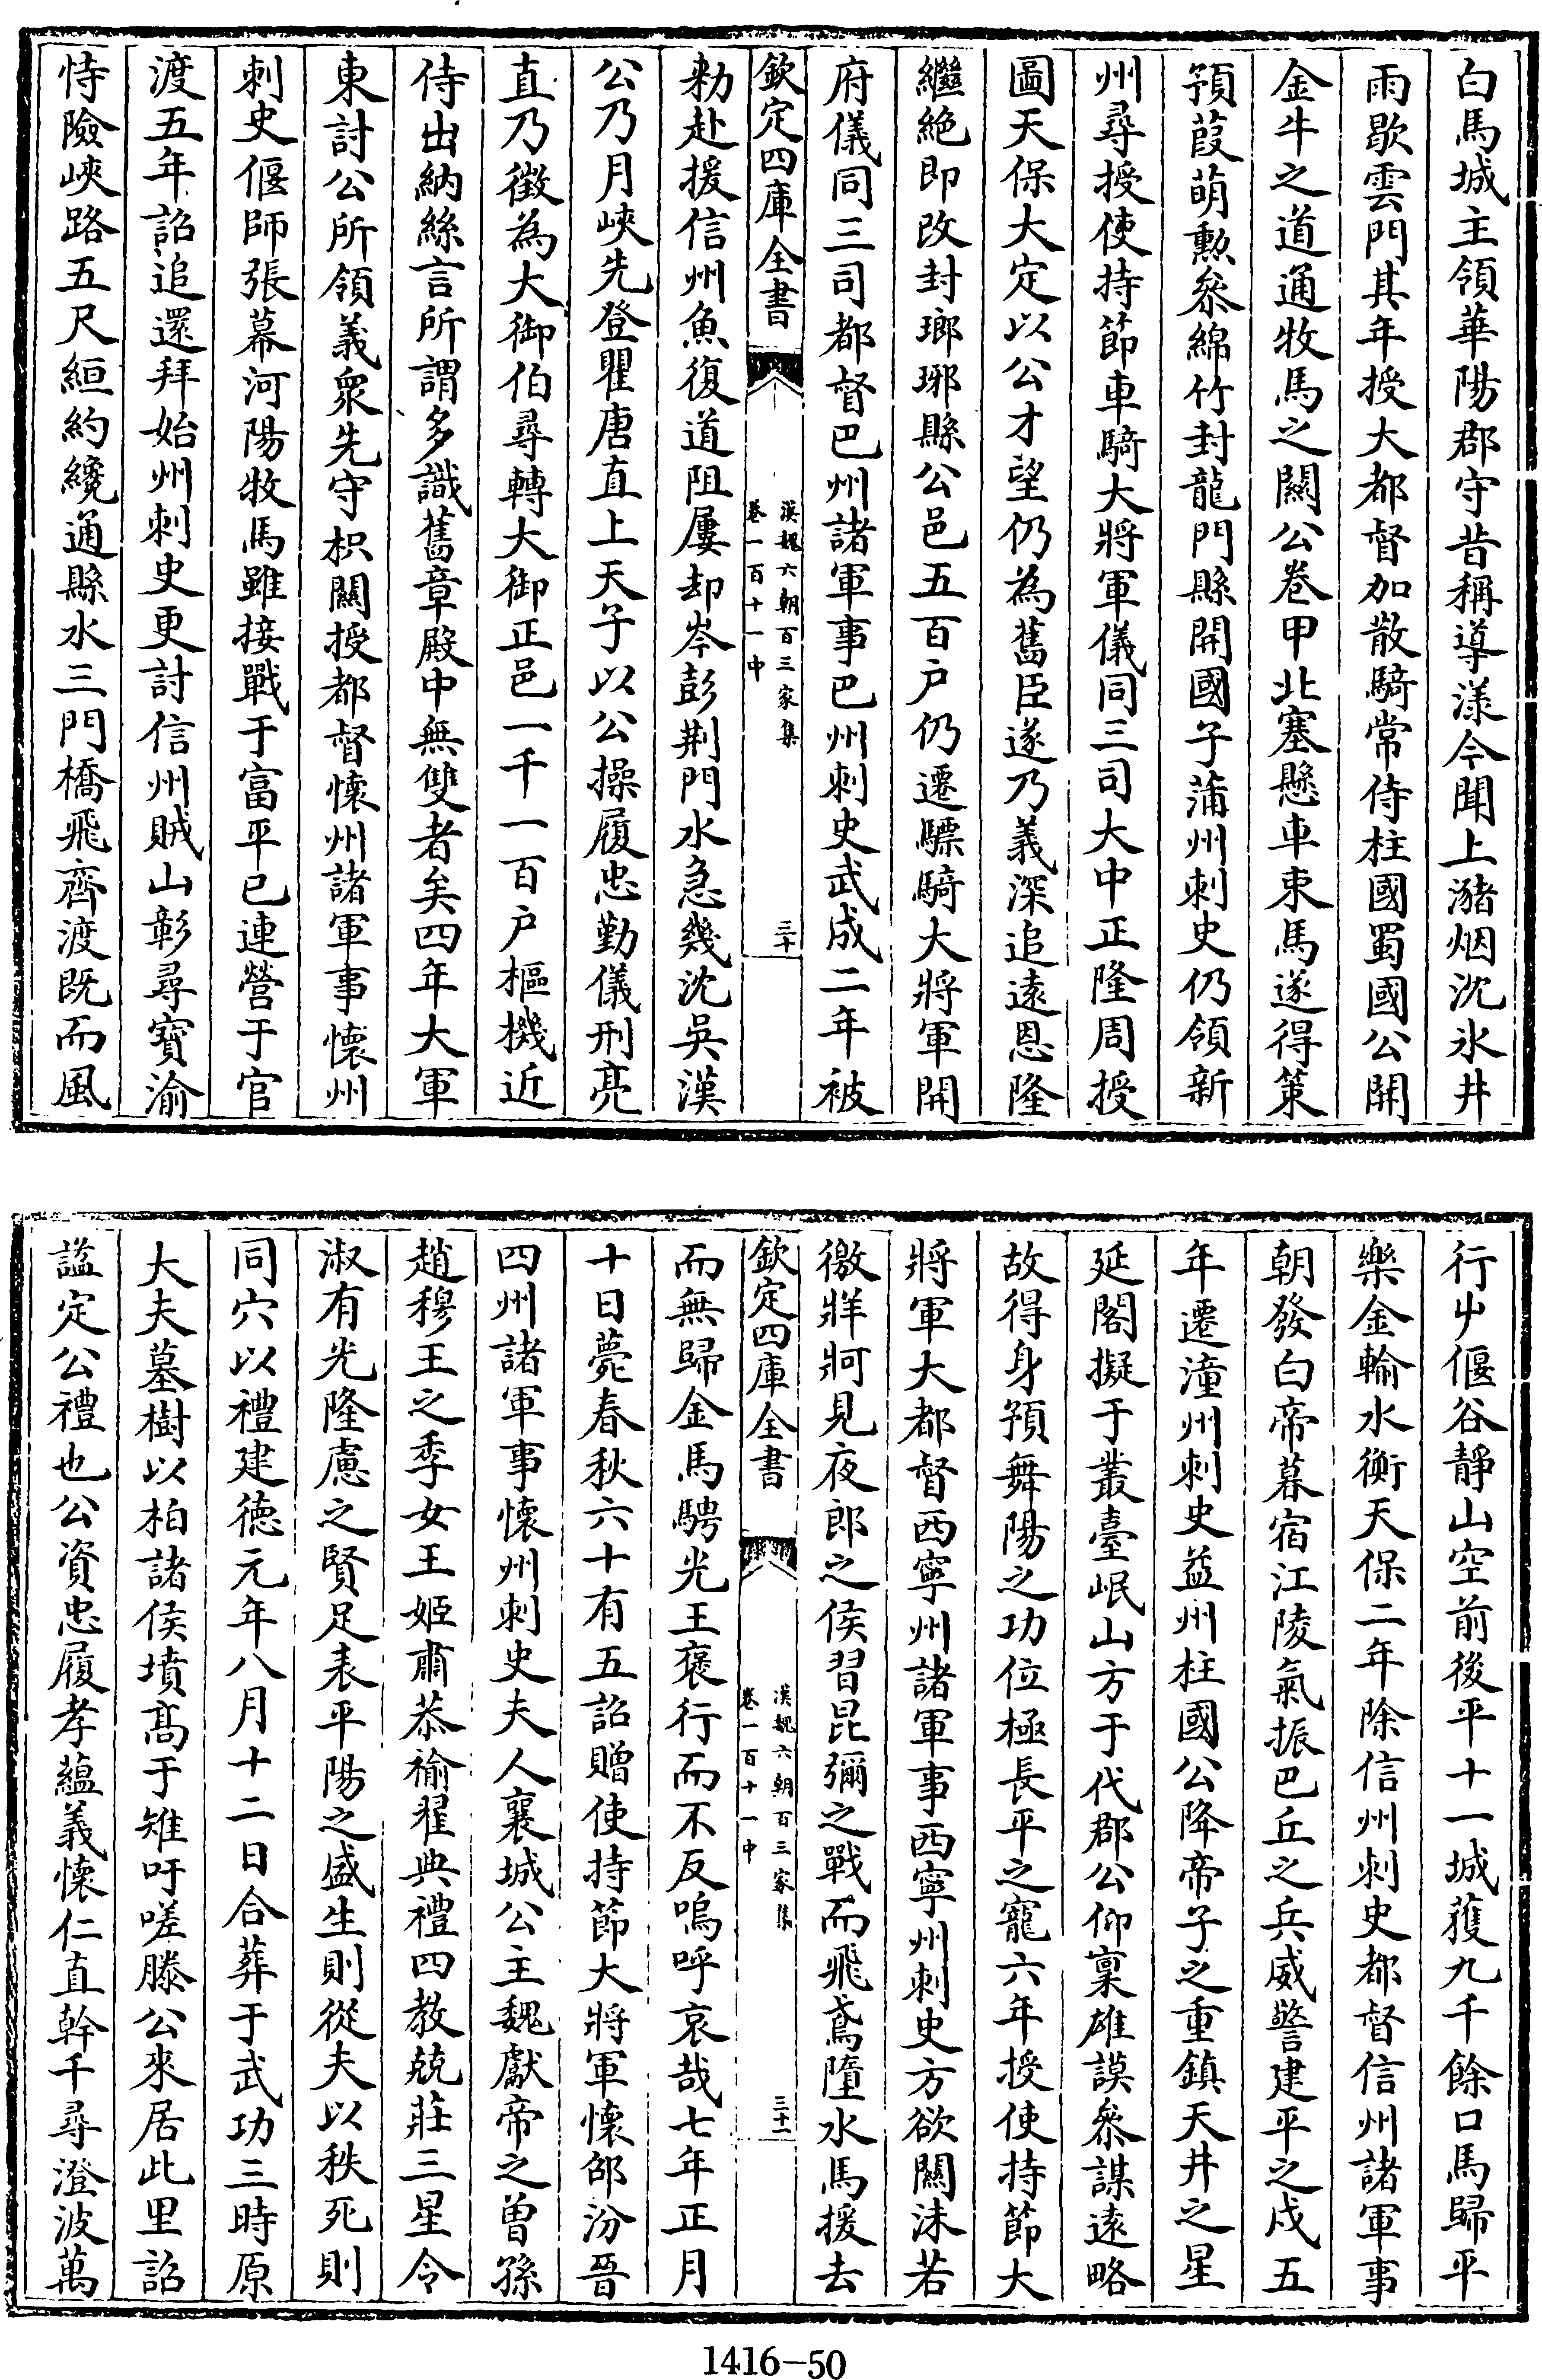 白馬城主領華陽郡守昔稱導漾今聞上瀦烟沈氷井
雨歇雲門其年授大都督加散騎常侍柱國蜀國公開
金牛之道通牧馬之關公卷甲北塞懸車束馬遂得策
預葭萌勲叅綿竹封龍門縣開國子蒲州刺史仍領新
州尋授使持節車騎大將軍儀同三司大中正隆周授
圖天保大定以公才望仍為舊臣遂乃義深追逺恩隆
繼絶即改封瑯琊縣公邑五百户仍遷驃騎大將軍開
府儀同三司都督巴州諸軍事巴州刺史武成二年被
欽定四庫全書
漢魏六朝百三家集
卷一百十一中
三十
勑赴援信州魚復道阻屢却岑彭荆門水急幾沈吳漢
公乃月峽先登瞿唐直上天子以公操履忠勤儀刑亮
直乃徵為大御伯尋轉大御正邑一千一百户樞機近
侍出納絲言所謂多識舊章殿中無雙者矣四年大軍
東討公所領義衆先守枳關授都督懷州諸軍事懷州
刺史偃師張幕河陽牧馬雖接戰于富平已連營于官
渡五年詔追還拜始州刺史更討信州賊山彰尋賨渝
恃險峽路五尺絙約纔通縣水三門橋飛齊渡既而風
行屮偃谷靜山空前後平十一城獲九千餘口馬歸平
樂金輸水衡天保二年除信州刺史都督信州諸軍事
朝發白帝暮宿江陵氣振巴丘之兵威警建平之戍五
年遷潼州刺史益州柱國公降帝子之重鎮天井之星
延閣擬于叢臺岷山方于代郡公仰稟雄謨叅謀逺略
故得身預舞陽之功位極長平之寵六年授使持節大
將軍大都督西寧州諸軍事西寧州刺史方欲關沬若
徼牂牁見夜郎之侯習昆彌之戰而飛鳶墮水馬援去
欽定四庫全書
漢魏六朝百三家集
卷一百十一中
三十一
而無歸金馬騁光王褒行而不反嗚呼哀哉七年正月
十日薨春秋六十有五詔贈使持節大將軍懷邵汾晉
四州諸軍事懷州刺史夫人襄城公主魏獻帝之曽孫
趙穆王之季女王姬肅恭褕翟典禮四教兢莊三星令
淑有光隆慮之賢足表平陽之盛生則從夫以秩死則
同穴以禮建德元年八月十二日合葬于武功三時原
大夫墓樹以柏諸侯墳髙于雉吁嗟滕公來居此里詔
諡定公禮也公資忠履孝蘊義懷仁直幹千尋澄波萬
1416-50